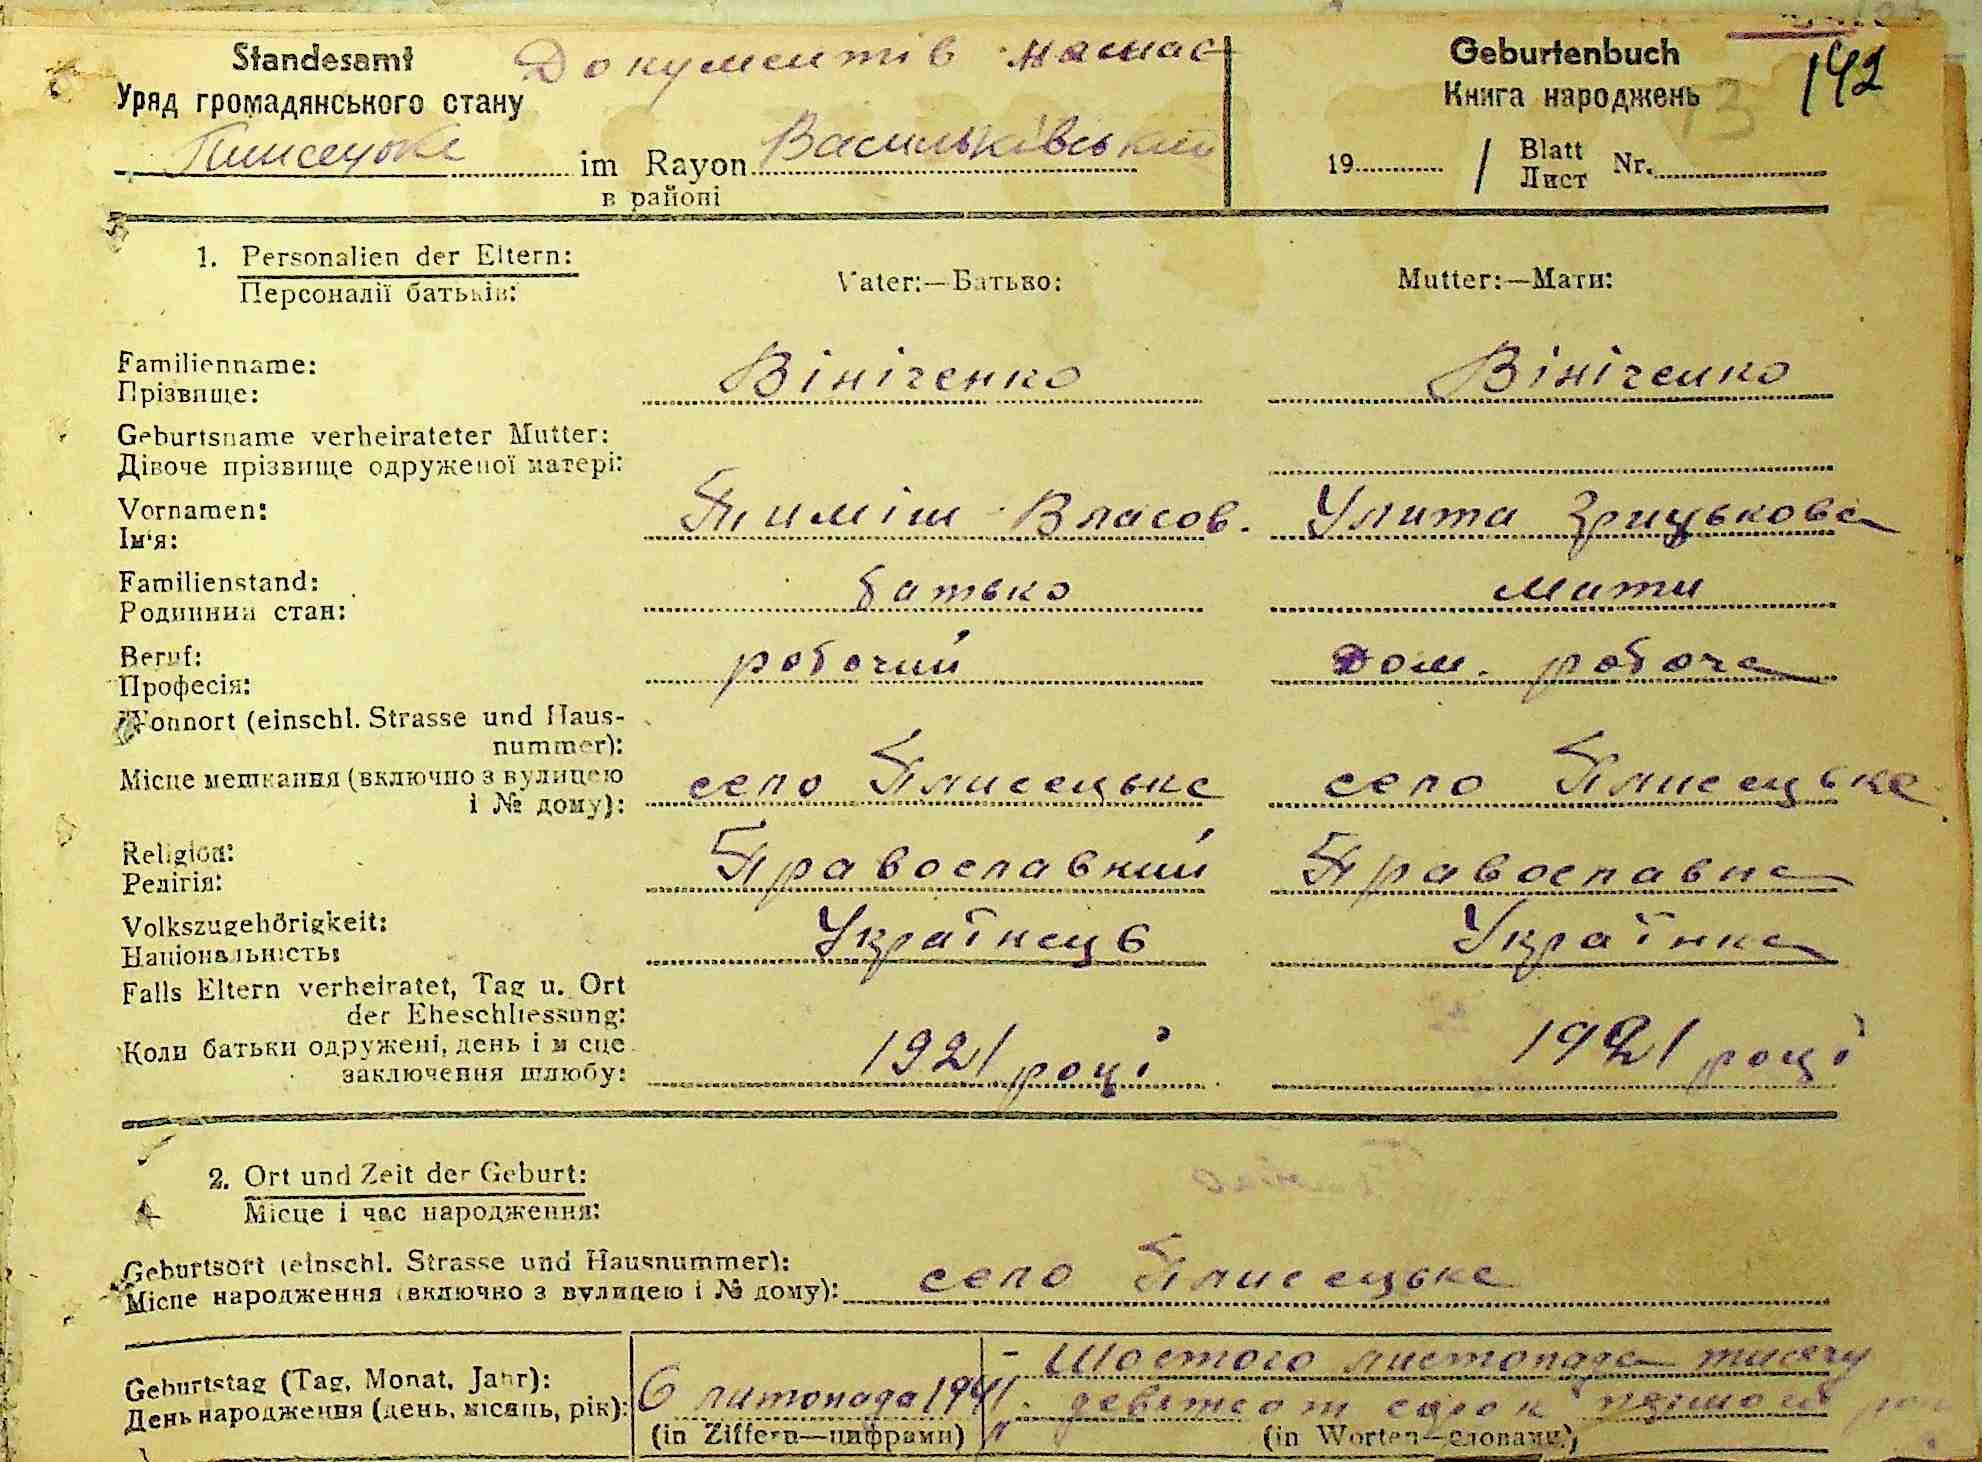 Standesamt
Уряд громадянського стану
Документів немає
Geburtenbuch
Книга народжень
142
Плисецьке im Rayon Васильківський
в районі
19 / Blatt Nr.
Лист
1. Personalien der Eltern:
Персоналії батьків:
Vater:—Батько:
Mutter:—Мати:
Familienname:
Прізвище:
Вініченко
Вініченко
Geburtsname verheirateter Mutter:
Дівоче прізвище одруженої матері:
Vornamen:
Ім'я:
Тиміш Власов.
Улита Грицькова
Familienstand:
Родинний стан:
батько
мати
Beruf:
Професія:
робочий
дом. робоча
Wohnort (einschl. Strasse und Haus-
nummer):
Місце мешкання (включно з вулицею
і № дому):
село Плисецьке
село Плисецьке
Religion:
Релігія:
Православний
Православна
Volkszugehörigkeit:
Національність:
Українець
Українка
Falls Eltern verheiratet, Tag u. Ort
der Eheschliessung:
Коли батьки одружені, день і місце
заключення шлюбу:
1921 році
1921 році
2. Ort und Zeit der Geburt:
Місце і час народження:
Geburtsort (einschl. Strasse und Hausnummer):
Місце народження (включно з вулицею і № дому): село Плисецьке
Geburtstag (Tag, Monat, Jahr):
День народження (день, місяць, рік):
6 литопада 1941
(in Ziffern—цифрами)
- Шостого листопада тисячу
девятсот сорок першого
(in Worten—словами)